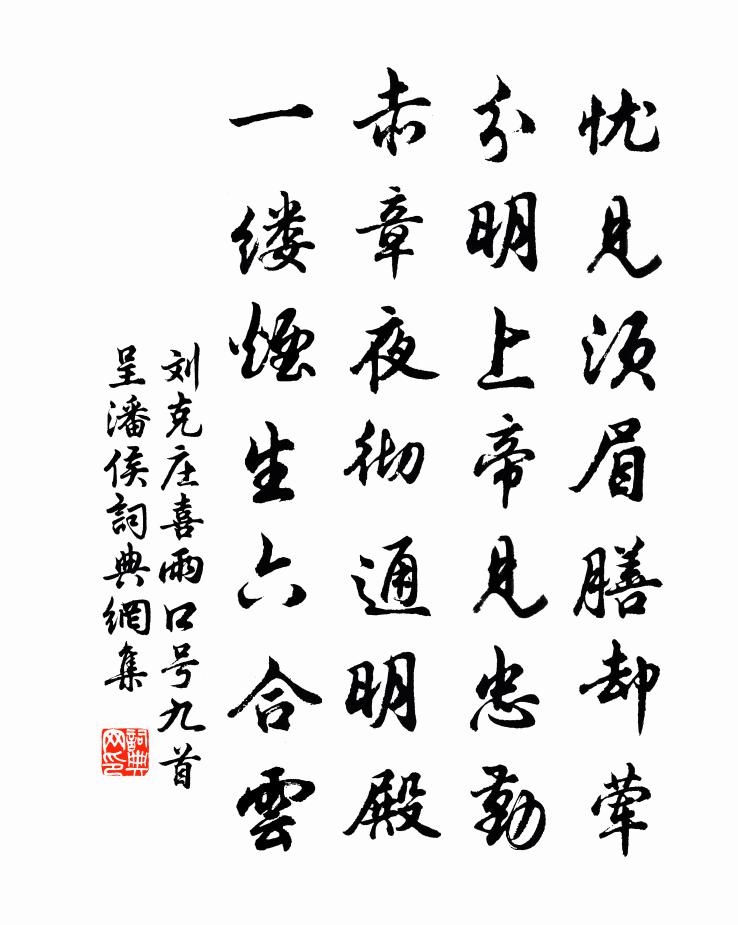 忧见须眉膳却荤
分明上帝见忠勤
赤章夜彻通明殿
一缕煙生六合雲
刘克庄喜雨口号九首
呈潘侯詞典網集
詞典网印